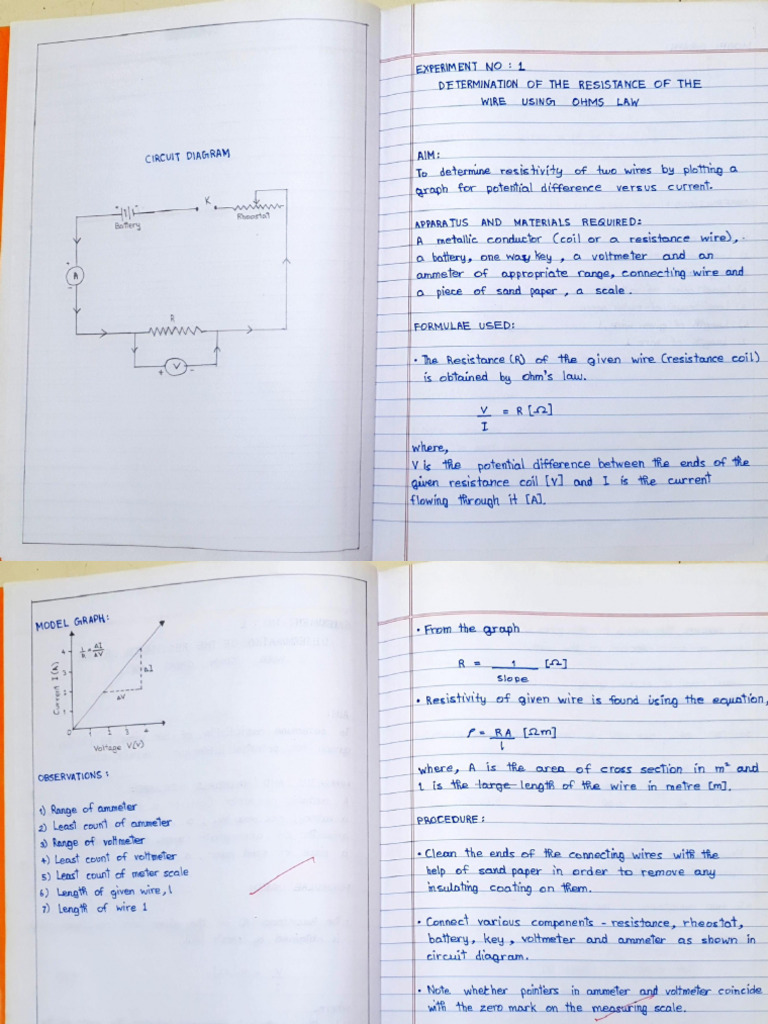 CIRCUIT DIAGRAM
+ -
Battery
K
Rheostat
+
A
-
R
+ V -
EXPERIMENT NO : 1
DETERMINATION OF THE RESISTANCE OF THE
WIRE USING OHMS LAW
AIM:
To determine resistivity of two wires by plotting a
graph for potential difference versus current.
APPARATUS AND MATERIALS REQUIRED:
A metallic conductor (coil or a resistance wire),
a battery, one way key, a voltmeter and an
ammeter of appropriate range, connecting wire and
a piece of sand paper, a scale.
FORMULAE USED:
• The Resistance (R) of the given wire (resistance coil)
is obtained by ohm's law.
V/I = R [Ω]
where,
V is the potential difference between the ends of the
given resistance coil [V] and I is the current
flowing through it [A].
MODEL GRAPH:
1/R = ΔI/ΔV
ΔI
ΔV
Current I (A)
4
3
2
1
0
1 2 3 4
Voltage V(V)
OBSERVATIONS :
1) Range of ammeter
2) Least count of ammeter
3) Range of voltmeter
4) Least count of voltmeter
5) Least count of meter scale
6) Length of given wire, l
7) Length of wire 1
• From the graph
R = 1/slope [Ω]
• Resistivity of given wire is found using the equation,
ρ = RA/l [Ωm]
where, A is the area of cross section in m² and
l is the large length of the wire in metre [m].
PROCEDURE :
• Clean the ends of the connecting wires with the
help of sand paper in order to remove any
insulating coating on them.
• Connect various components - resistance, rheostat,
battery, key, voltmeter and ammeter as shown in
circuit diagram.
• Note whether pointers in ammeter and voltmeter coincide
with the zero mark on the measuring scale.